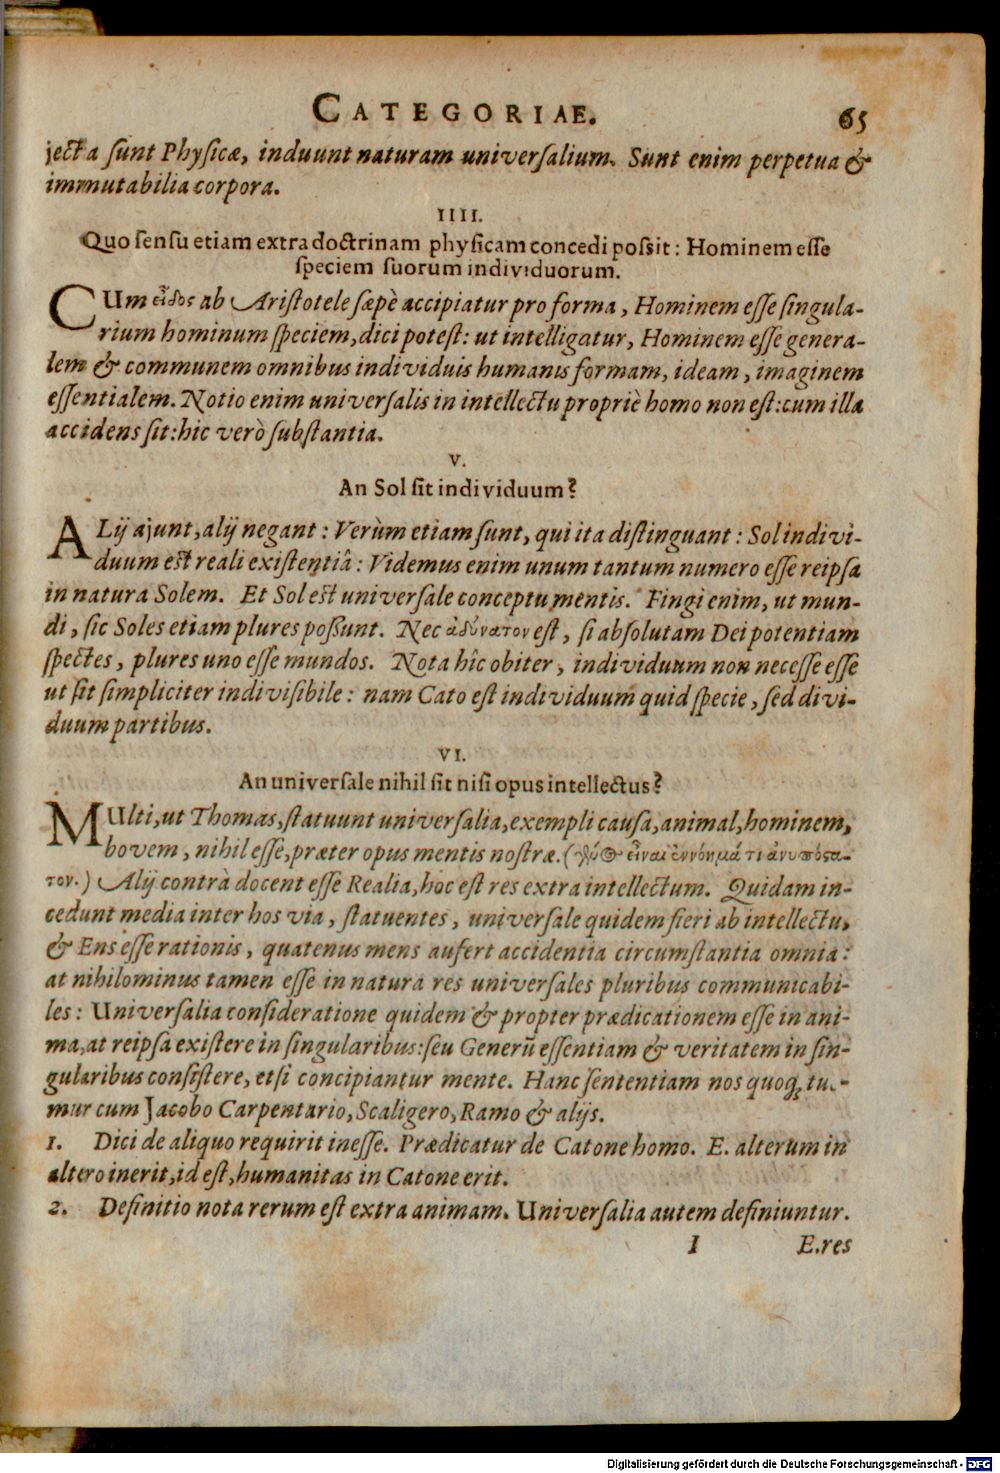 CATEGORIAE. 65
jecta sunt Physicæ, induunt naturam universalium. Sunt enim perpetua &
immutabilia corpora.
IIII.
Quo sensu etiam extra doctrinam physicam concedi possit: Hominem esse
speciem suorum individuorum.
CUm εἶδος ab Aristotele sæpè accipiatur pro forma, Hominem esse singula-
rium hominum speciem, dici potest: ut intelligatur, Hominem esse genera-
lem & communem omnibus individuis humanis formam, ideam, imaginem
essentialem. Notio enim universalis in intellectu propriè homo non est: cum illa
accidens sit: hic verò substantia.
V.
An Sol sit individuum?
ALij ajunt, alij negant: Verùm etiam sunt, qui ita distinguant: Sol indivi-
duum est reali existentiâ: Videmus enim unum tantum numero esse reipsa
in natura Solem. Et Sol est universale conceptu mentis. Fingi enim, ut mun-
di, sic Soles etiam plures possunt. Nec ἀδύνατον est, si absolutam Dei potentiam
spectes, plures uno esse mundos. Nota hîc obiter, individuum non necesse esse
ut sit simpliciter indivisibile: nam Cato est individuum quid specie, sed divi-
duum partibus.
VI.
An universale nihil sit nisi opus intellectus?
MUlti, ut Thomas, statuunt universalia, exempli causa, animal, hominem,
bovem, nihil esse, præter opus mentis nostræ. ( εἶναι ἐννόημά τι ἀνυπόςα-
τον.) Alij contrà docent esse Realia, hoc est res extra intellectum. Quidam in-
cedunt media inter hos via, statuentes, universale quidem fieri ab intellectu,
& Ens esse rationis, quatenus mens aufert accidentia circumstantia omnia:
at nihilominus tamen esse in natura res universales pluribus communicabi-
les: Universalia consideratione quidem & propter prædicationem esse in ani-
ma, at reipsa existere in singularibus: seu Generũ essentiam & veritatem in sin-
gularibus consistere, etsi concipiantur mente. Hanc sententiam nos quoq; tue-
mur cum Jacobo Carpentario, Scaligero, Ramo & alijs.
1. Dici de aliquo requirit inesse. Prædicatur de Catone homo. E. alterum in
altero inerit, id est, humanitas in Catone erit.
2. Definitio nota rerum est extra animam. Universalia autem definiuntur.
I E. res
Digitalisierung gefördert durch die Deutsche Forschungsgemeinschaft - DFG